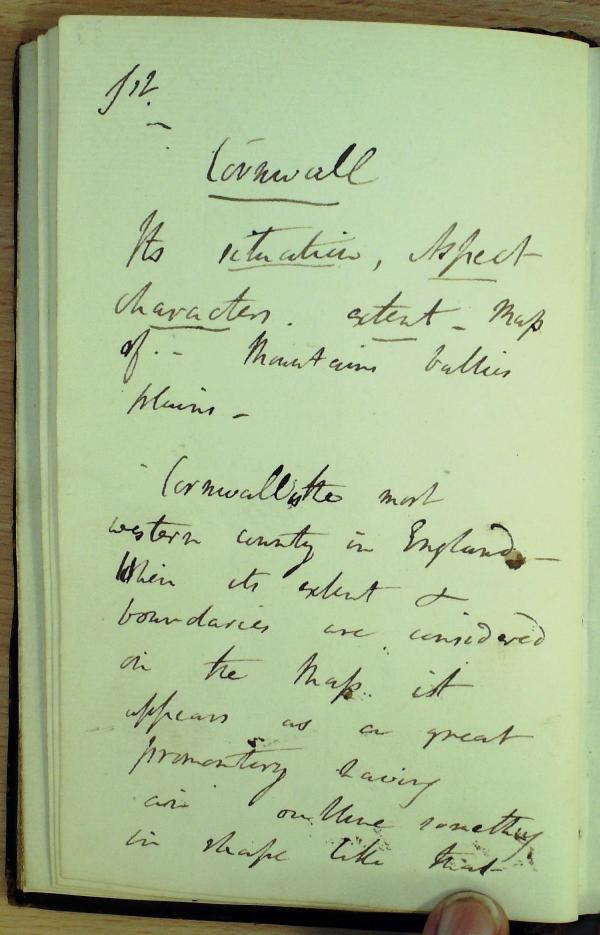 Cornwall
Its situation, Aspect
characters. extent - Map
of. - Mountains vallies
plains -
Cornwall is the most
western county in England -
When its extent &
boundaries are considered
on the Map. it
appears as a great
promontory having
an outline something
in shape like that